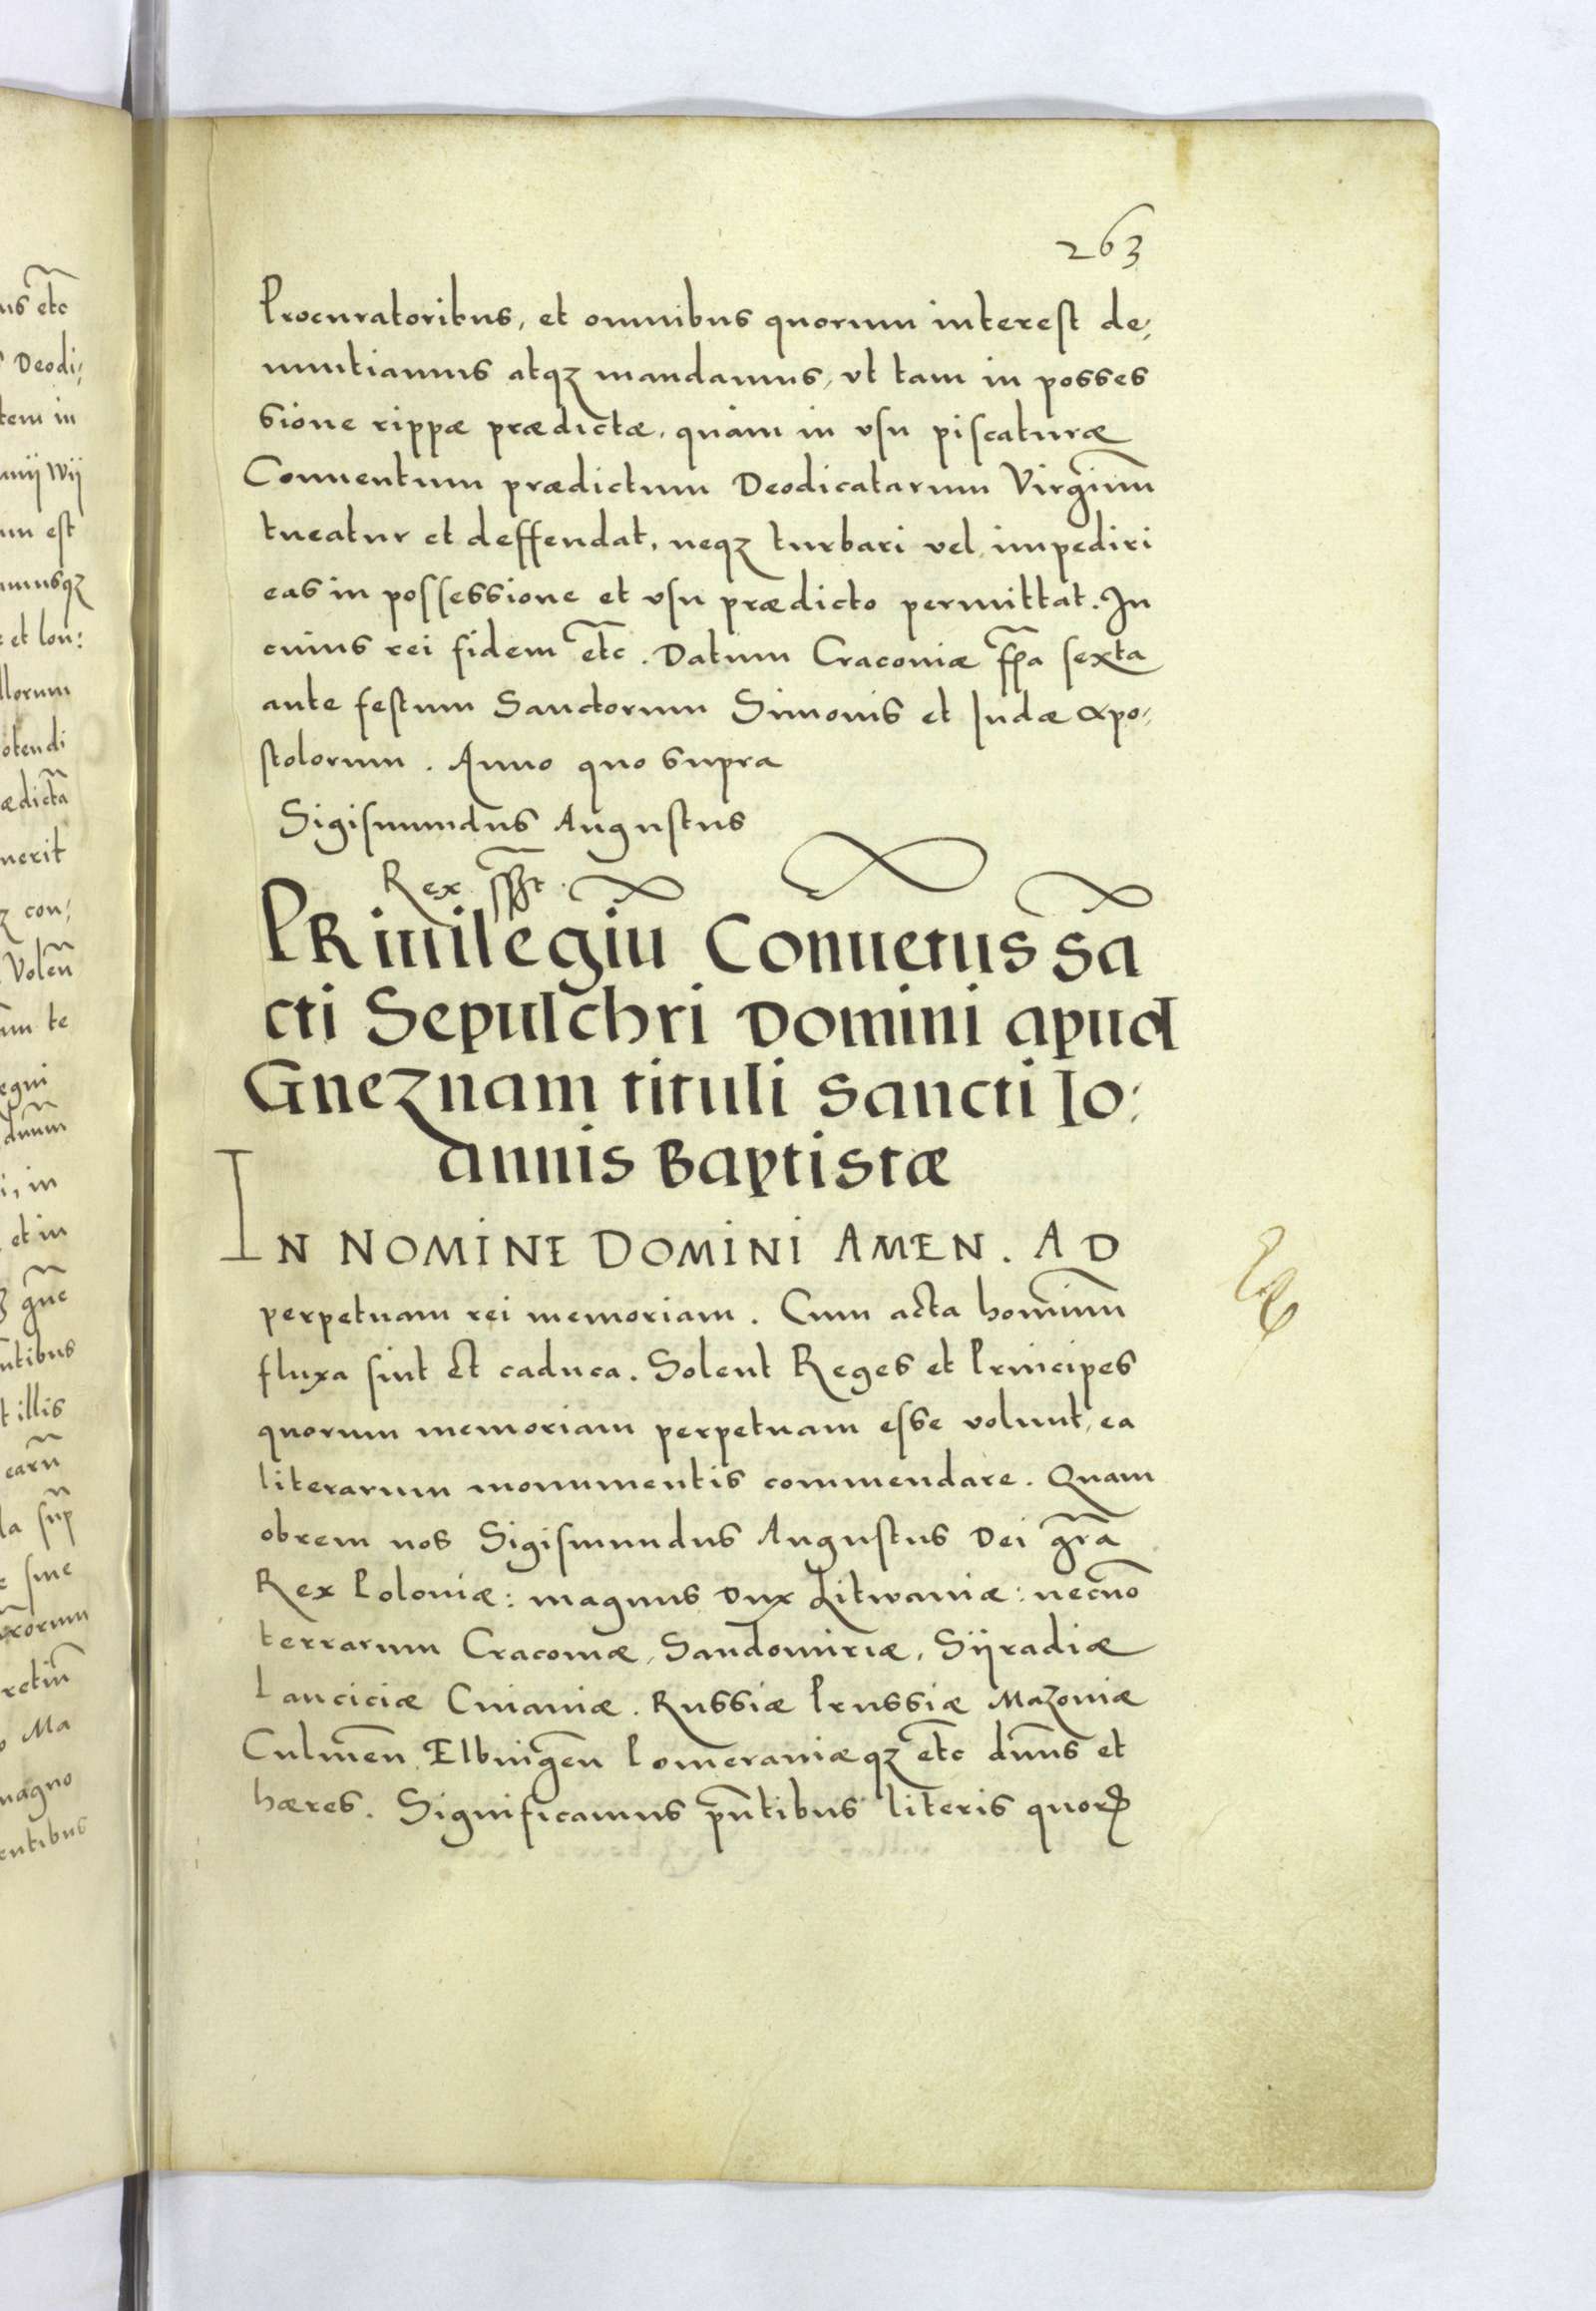 263
Procuratoribus, et omnibus quorum interest de,
nuntiamus atqꝫ mandamus, vt tam in posses
sione rippæ prædictæ, quàm in vsu piscaturæ
Conuentum prædictum Deodicatarum Virginū
tueatur et deffendat, neqꝫ turbari vel impediri
eas in possessione et vsu prædicto permittat. In
cuius rei fidem etc̃. Datum Cracouiæ fr̃a sexta
ante festum Sanctorum Simonis et Iudæ Apo,
stolorum. Anno quo supra
Sigismundus Augustus
Rex
PRiuilegiū Conuētus Sā
cti Sepulchri Domini apud
Gneznam tituli Sancti Io:
annis Baptistæ
IN NOMINE DOMINI AMEN. AD
perpetuam rei memoriam. Cum acta hominū
fluxa sint et caduca. Solent Reges et Principes
quorum memoriam perpetuam esse volunt, ea
literarum monumentis commendare. Quam
obrem nos Sigismundus Augustus Dei gr̃a
Rex Poloniæ: magnus Dux Litwaniæ: necnõ
terrarum Cracouiæ, Sandomiriæ, Sÿradiæ
Lanciciæ Cuiauiæ. Russiæ Prussiæ Mazouiæ
Culmeñ. Elbingeñ Pomeraniæqꝫ etc̃ dñus et
hæres. Significamus pñtibus literis quorꝫ
us etc̃
s Deodi,
tem in
Wij
um est
musqꝫ
et lon:
llorum
otendi
ædictã
uerit
con,
Voleñ
te
egni
i, in
et in
gñe
ñtibus
t illis
earũ
sine
o Ma
magno
entibus